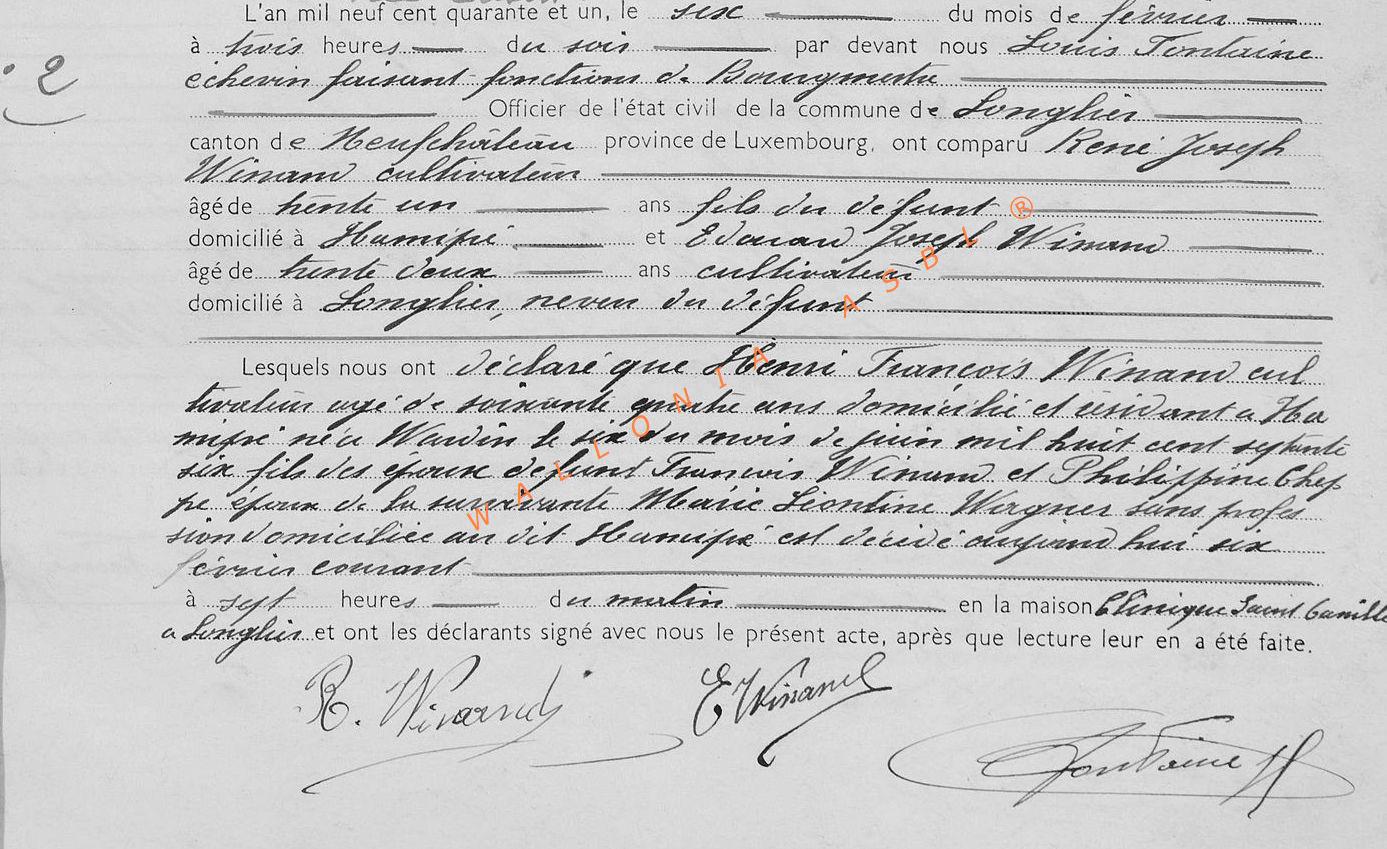 L'an mil neuf cent quarante et un, le six du mois de février
à trois heures du soir par devant nous Louis Fontaine
2
échevin faisant fonctions de Bourgmestre
Officier de l'état civil de la commune de Longlier
canton de Neufchâteau province de Luxembourg, ont comparu René Joseph
Winand cultivateur
âgé de trente un ans fils du défunt
domicilié à Hamipré et Edouard Joseph Winand
âgé de trente deux ans cultivateur
domicilié à Longlier, neveu du défunt
Lesquels nous ont déclaré que Henri François Winand cul
tivateur agé de soixante quatre ans domicilié et résidant a Ha
mipré né a Wardin le six du mois de juin mil huit cent septante
six fils des époux defunt François Winand et Philippine Chep
pe époux de la survivante Marie Léontine Wagner sans profes
sion domiciliée au dit Hamipré est décédé aujourd hui six
février courant
à sept heures du matin en la maison Clinique Saint Camille
a Longlier et ont les déclarants signé avec nous le présent acte, après que lecture leur en a été faite.
R. Winand E Winand
Fontaine
WALLONIA ASBL ®